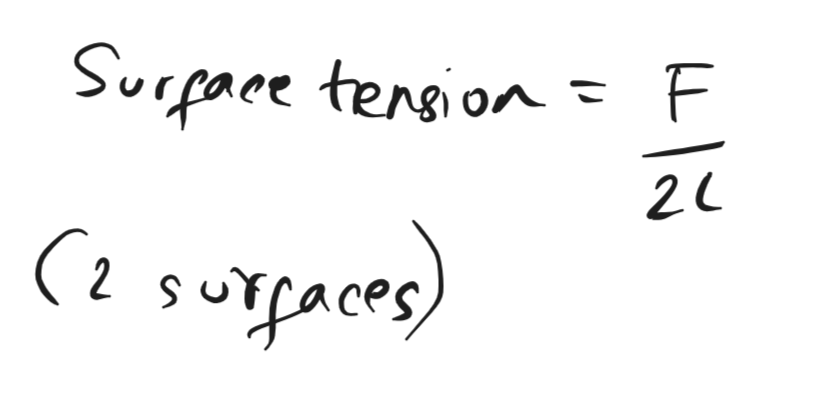 Surface tension = F
2L
(2 surfaces)